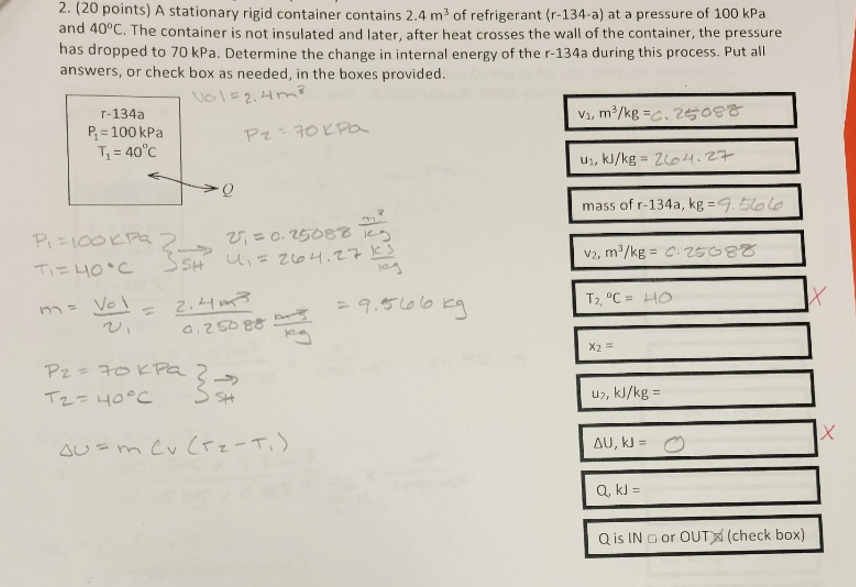 2. (20 points) A stationary rigid container contains 2.4 m³ of refrigerant (r-134-a) at a pressure of 100 kPa
and 40°C. The container is not insulated and later, after heat crosses the wall of the container, the pressure
has dropped to 70 kPa. Determine the change in internal energy of the r-134a during this process. Put all
answers, or check box as needed, in the boxes provided.
Vol = 2.4m³
r-134a
P₁ = 100 kPa
T₁ = 40°C
P2 = 70 kPa
Q
P₁ = 100 kPa
T₁ = 40°C
SH
v₁ = 0.25088 m³/kg
u₁ = 264.27 kJ/kg
m = Vol/v₁ = 2.4m³ / 0.25088 m³/kg = 9.566 kg
P2 = 70 kPa
T2 = 40°C
SH
ΔU = m Cv (T2 - T₁)
v₁, m³/kg = 0.25088
u₁, kJ/kg = 264.27
mass of r-134a, kg = 9.566
v₂, m³/kg = 0.25088
T₂, °C = 40
X
x₂ =
u₂, kJ/kg =
ΔU, kJ = 0
X
Q, kJ =
Q is IN □ or OUT ☒ (check box)